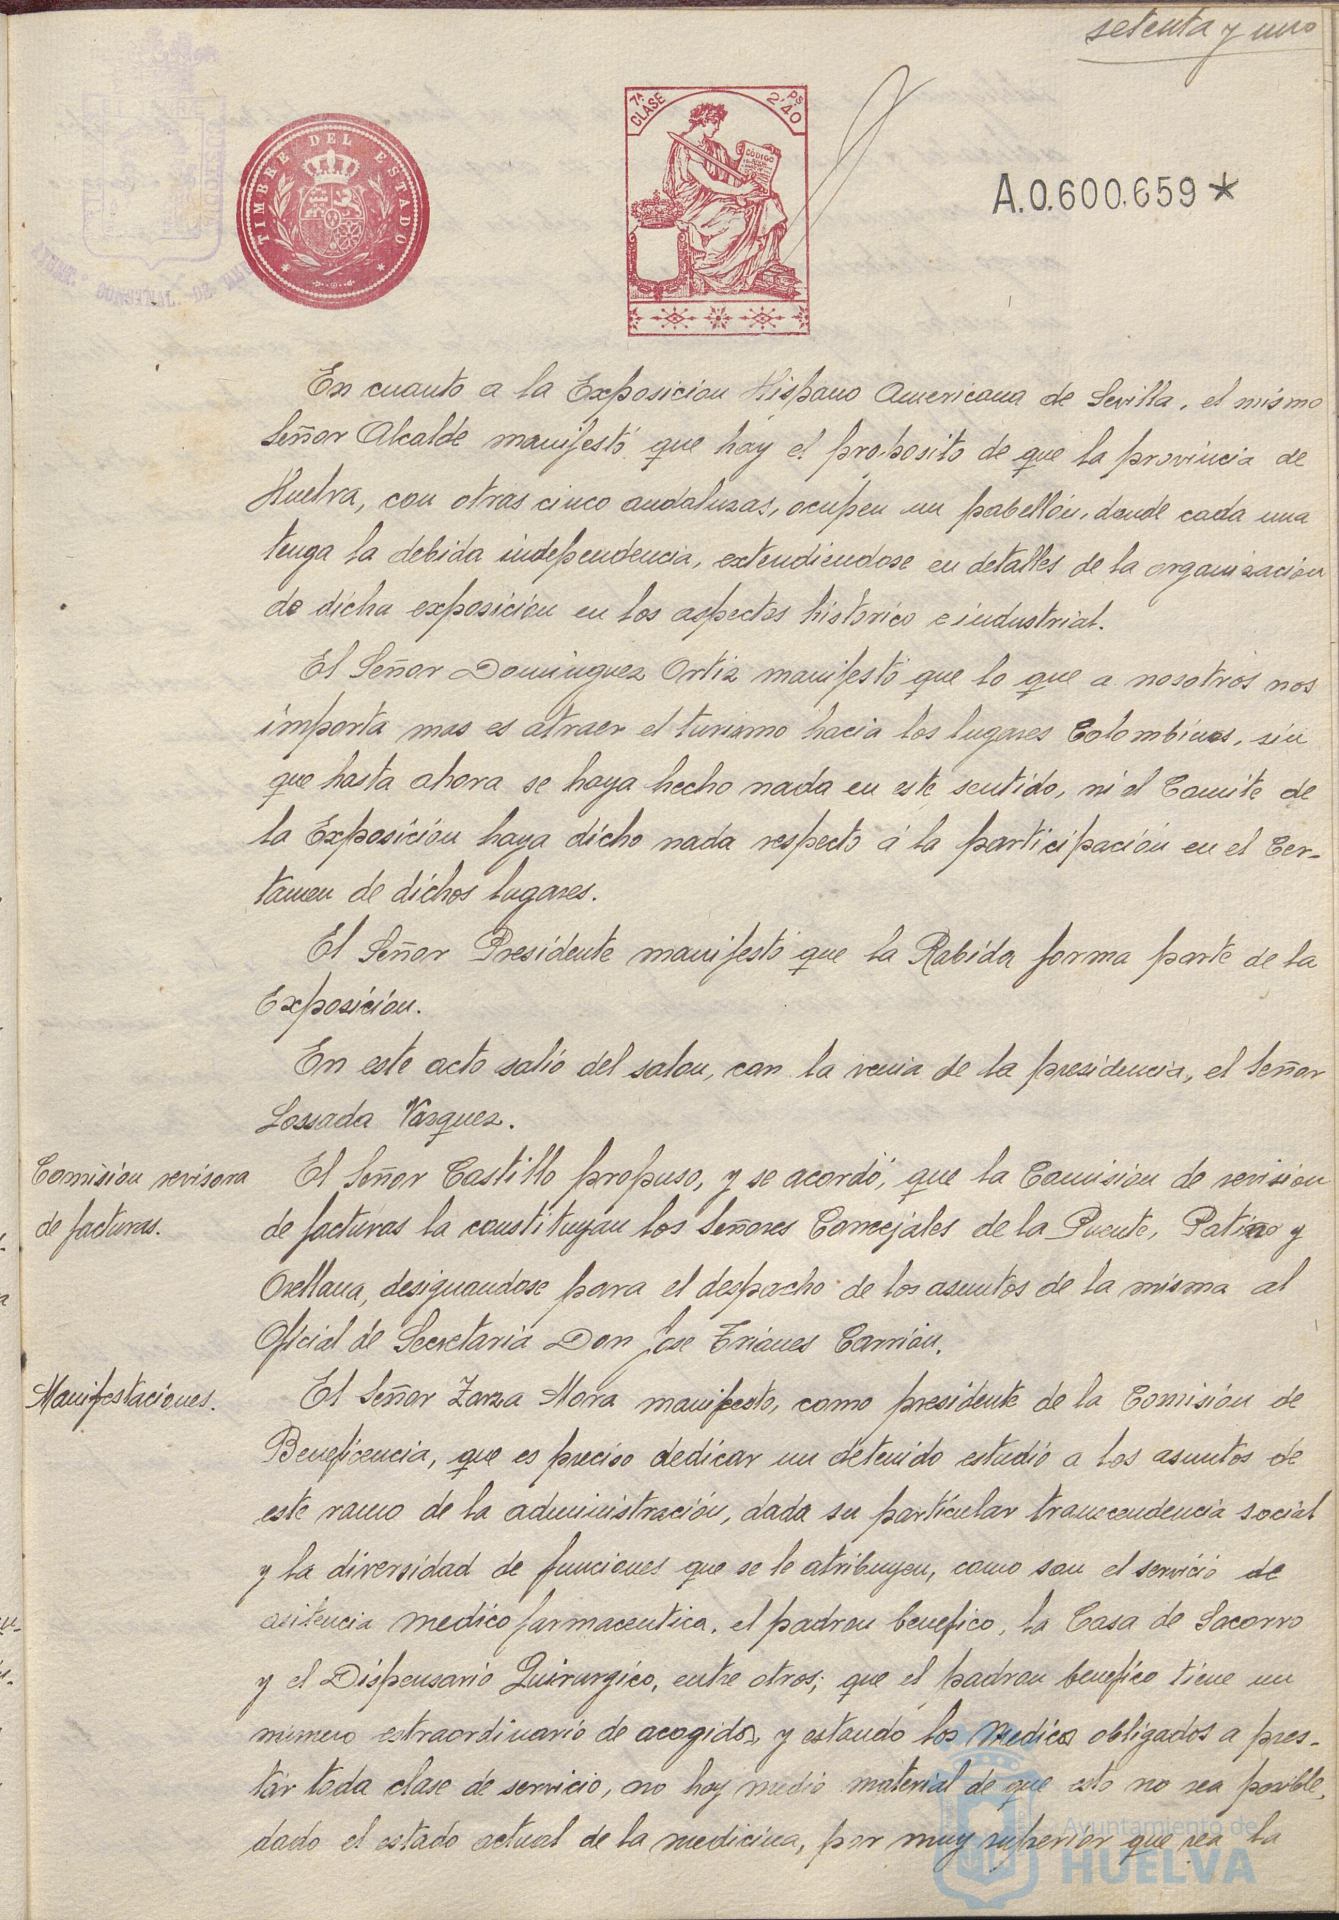 setenta y uno
TIMBRE DEL ESTADO
7ª CLASE
2'40 PS
CÓDIGO
A.0.600.659*
En cuanto a la Exposicion Hispano Americana de Sevilla, el mismo
Señor Alcalde manifestó que hay el proposito de que la provincia de
Huelva, con otras cinco andaluzas, ocupen un pabellón, donde cada una
tenga la debida independencia, extendiendose en detalles de la organizacion
de dicha exposición en los aspectos historico e industrial.
El Señor Dominguez Ortiz manifestó que lo que a nosotros nos
importa mas es atraer el turismo hacia los lugares Colombinos, sin
que hasta ahora se haya hecho nada en este sentido, ni el Comite de
la Exposición haya dicho nada respecto á la participación en el Cer-
tamen de dichos lugares.
El Señor Presidente manifestó que la Rabida forma parte de la
Exposición.
En este acto salió del salon, con la venia de la presidencia, el Señor
Lossada Vazquez.
Comisión revisora
de facturas.
El Señor Castillo propuso, y se acordó, que la Comisión de revision
de facturas la constituyan los Señores Concejales de la Puente, Patino y
Orellana, designandose para el despacho de los asuntos de la misma al
Oficial de Secretaria Don Jose Trianes Carrión.
Manifestaciones.
El Señor Zarza Mora manifesto, como presidente de la Comisión de
Beneficencia, que es preciso dedicar un detenido estudió a los asuntos de
este ramo de la administración, dada su particular transcendencia social
y la diversidad de funciones que se le atribuyen, como son el servicio de
asitencia medico farmaceutica, el padron benefico, la Casa de Socorro
y el Dispensario Quirurgico, entre otros; que el padron benefico tiene un
numero estraordinario de acogidos, y estando los Medicos obligados a pres-
tar toda clase de servicio, no hay medio material de que esto no sea posible,
dado el estado actual de la medicina, por muy superior que sea la
Ayuntamiento de
HUELVA